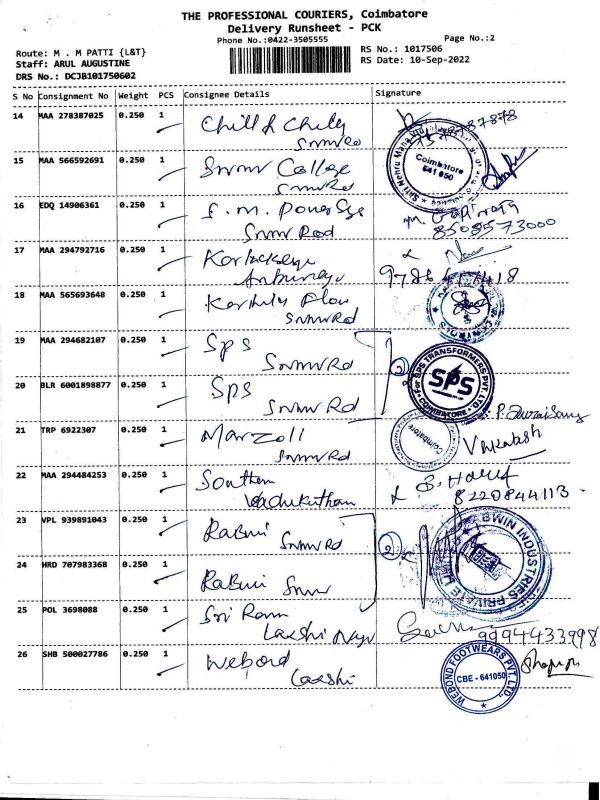 THE PROFESSIONAL COURIERS, Coimbatore
Delivery Runsheet - PCK
Phone No.:0422-3505555 Page No.:2
Route: M . M PATTI {L&T} RS No.: 1017506
Staff: ARUL AUGUSTINE RS Date: 10-Sep-2022
DRS No.: DCJB101750602
S No Consignment No Weight PCS Consignee Details Signature
14 MAA 278387025 0.250 1 Chill & Chily
SNMV Rd
15 MAA 566592691 0.250 1 Snmv College
SNMV Rd
Coimbatore
641 050
16 EDQ 14906361 0.250 1 F.M. Power Sys
SNMV Rod
8508573000
17 MAA 294792716 0.250 1
18 MAA 565693648 0.250 1 Flow
SNMV Rd
19 MAA 294682107 0.250 1 Sps
SNMV Rd
2
For SPS TRANSFORMERS PVT. LTD.
SPS
COIMBATORE
20 BLR 6001898877 0.250 1 Sps
SNMV Rd
21 TRP 6922307 0.250 1 Marzoli
SNMV Rd
Coimbatore
Venkatesh
22 MAA 294484253 0.250 1 Southern
8220844113
23 VPL 939891043 0.250 1 Rabwi
SNMV Rd
2
RABWIN INDUSTRIES PRIVATE
24 HRD 707983368 0.250 1 Rabwi Snmv
25 POL 3698088 0.250 1 Sri Ram
9994433998
26 SHB 500027786 0.250 1 Webord
Laxshi
WEBOND FOOTWEARS PVT. LTD.,
CBE - 641050